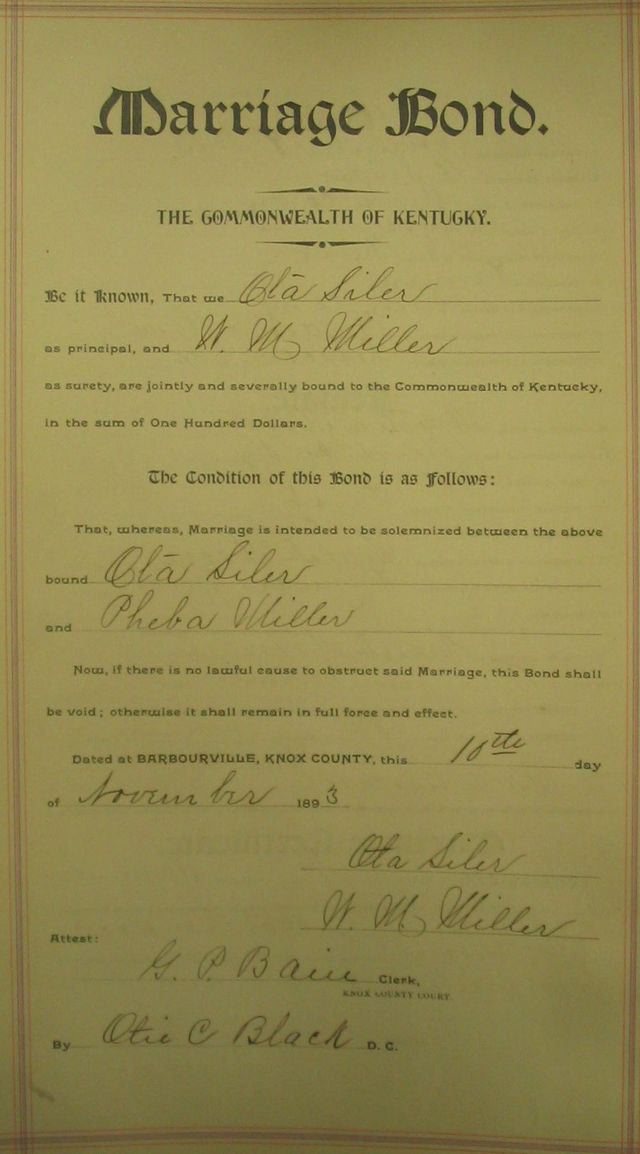 Marriage Bond.
THE COMMONWEALTH OF KENTUCKY.
Be it Known, That we Ota Siler
as principal, and W. M Miller
as surety, are jointly and severally bound to the Commonwealth of Kentucky,
in the sum of One Hundred Dollars.
The Condition of this Bond is as Follows:
That, whereas, Marriage is intended to be solemnized between the above
bound Ota Siler
and Pheba Miller
Now, if there is no lawful cause to obstruct said Marriage, this Bond shall
be void; otherwise it shall remain in full force and effect.
Dated at BARBOURVILLE, KNOX COUNTY, this 10th day
of November 1893
Ota Siler
W. M Miller
Attest:
G. P. Bain Clerk,
KNOX COUNTY COURT
By Otie C Black D. C.